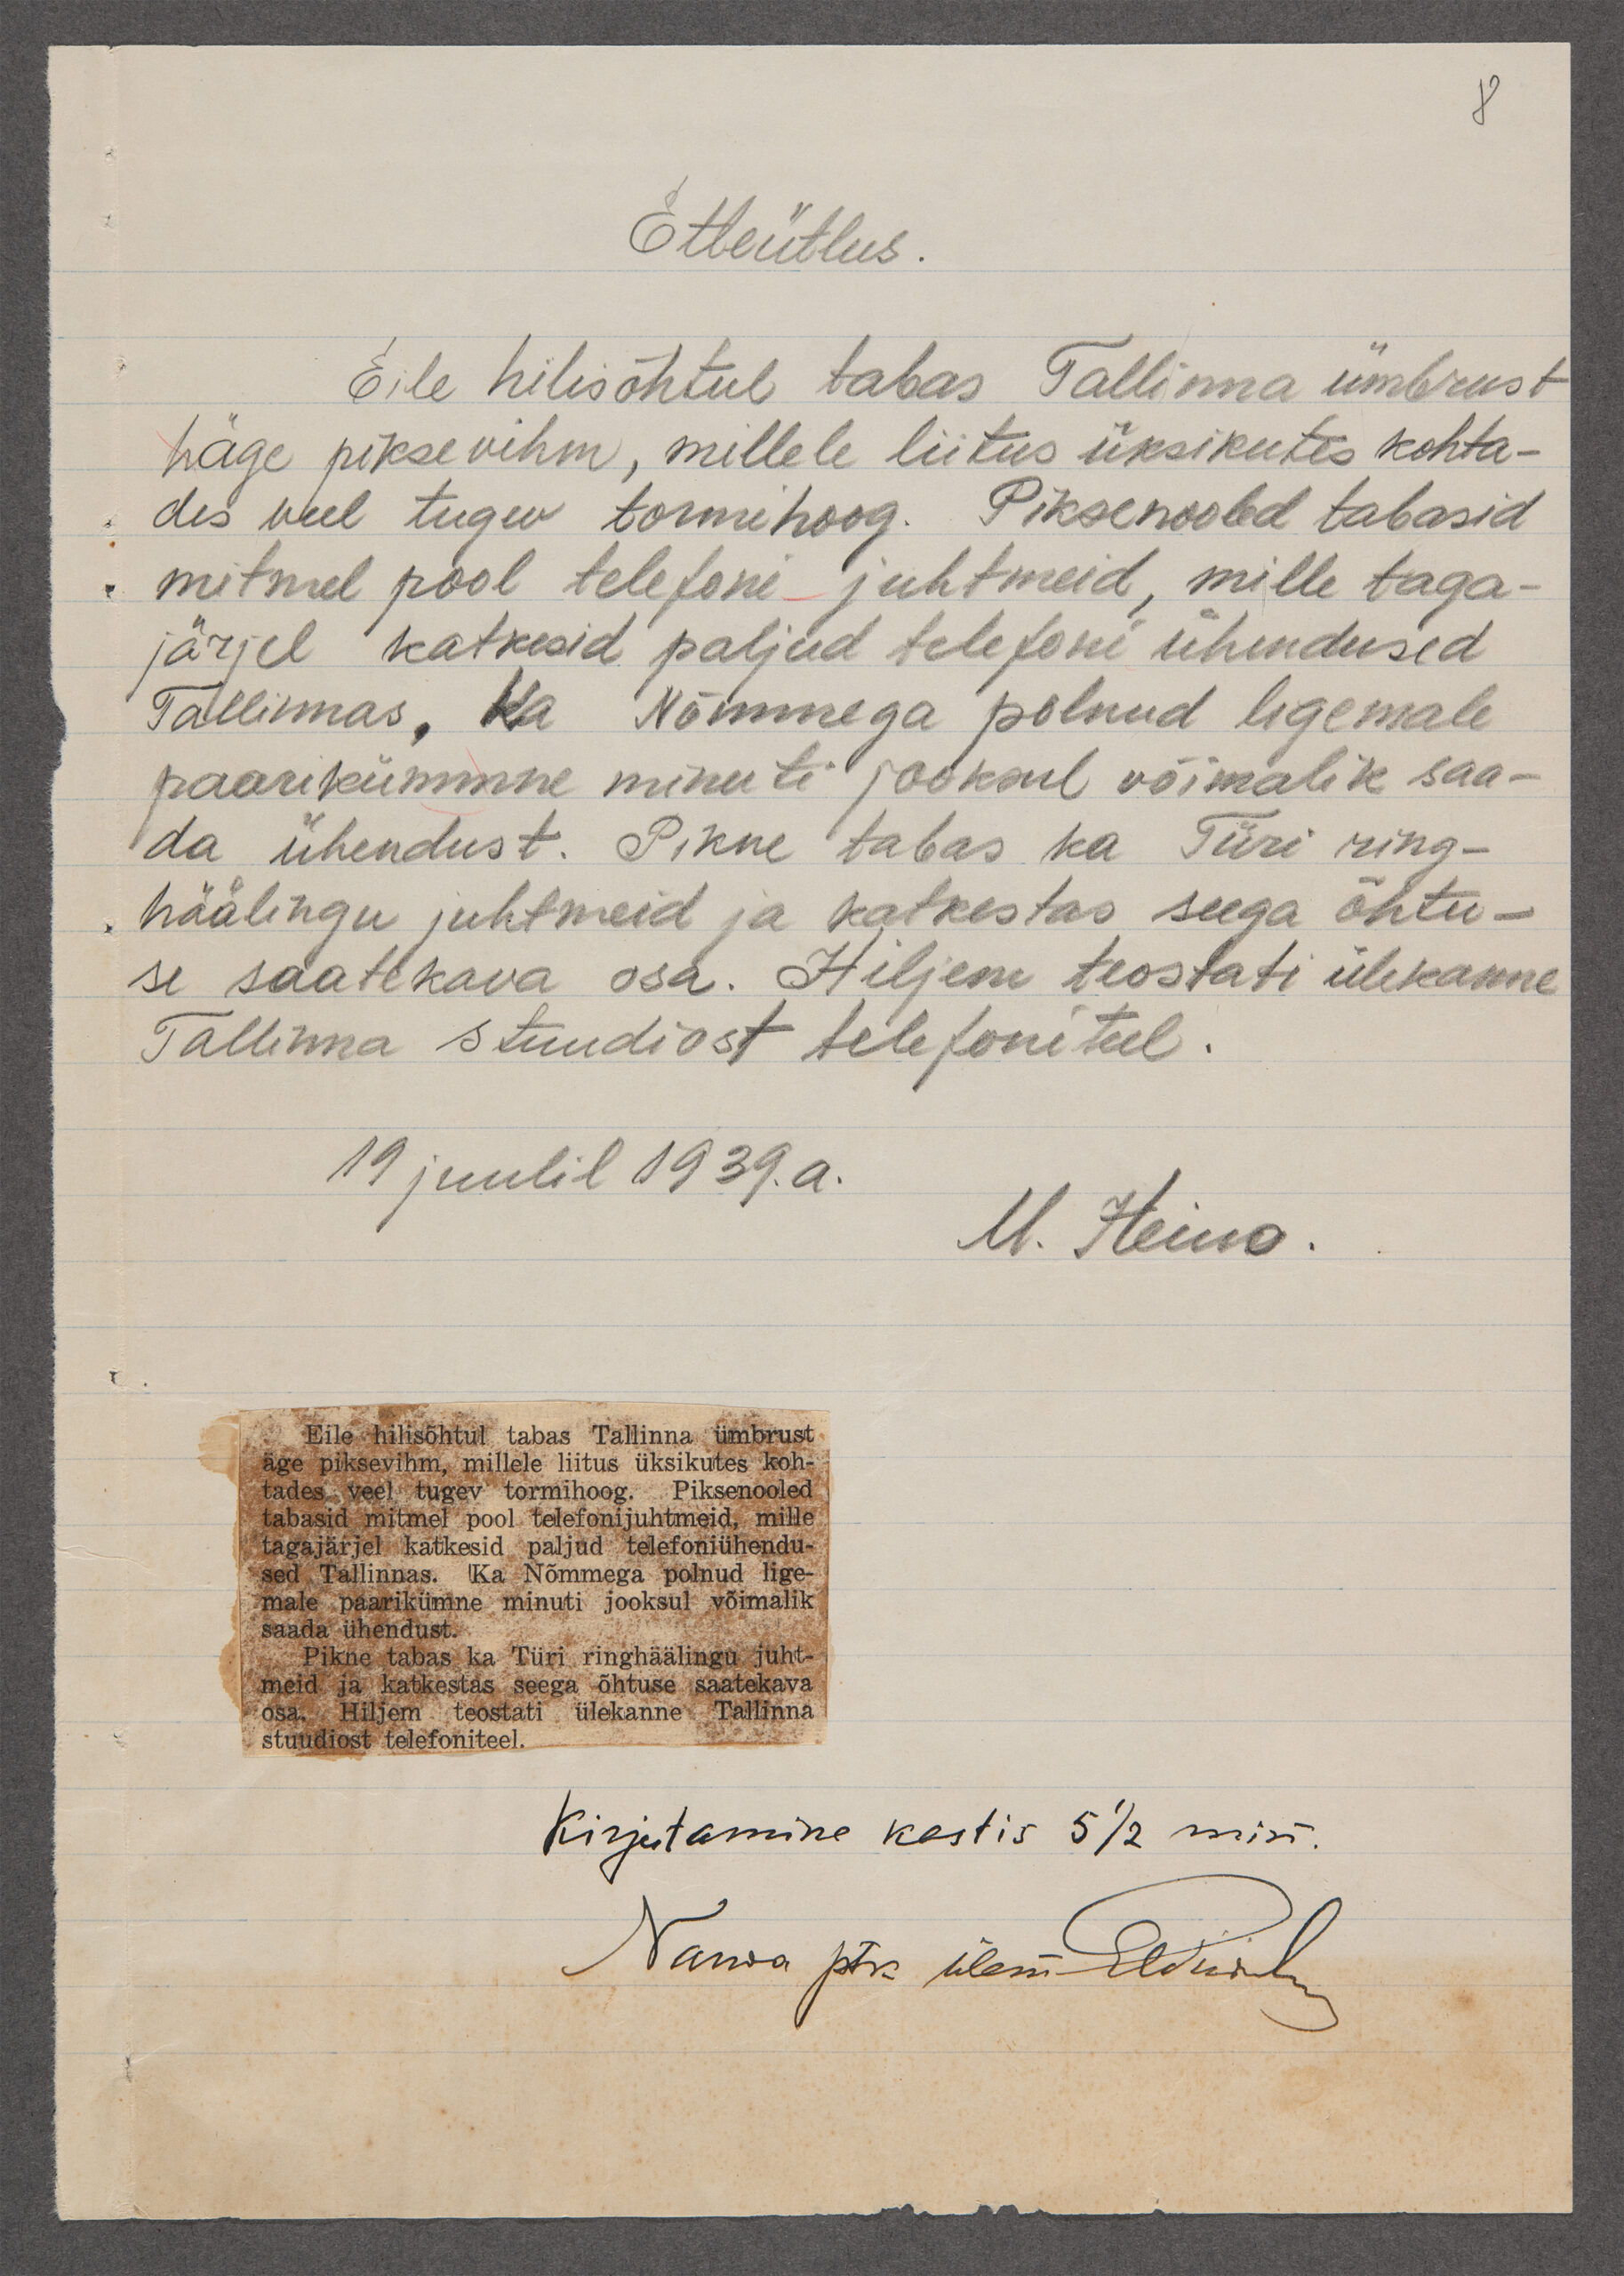 8
Etteütlus.
Eile hilisõhtul tabas Tallinna ümbrust
häge piksevihm, millele liitus üksikutes kohta-
des veel tugev tormihoog. Piksenooled tabasid
mitmel pool telefoni juhtmeid, mille taga-
järjel katkesid paljud telefoni ühendused
Tallinnas. Ka Nõmmega polnud ligemale
paarikümmne minuti jooksul võimalik saa-
da ühendust. Pikne tabas ka Türi ring-
häälingu juhtmeid ja katkestas seega õhtu-
se saatekava osa. Hiljem teostati ülekanne
Tallinna stuudiost telefoniteel.
19 juulil 1939.a.
M. Heino.
Eile hilisõhtul tabas Tallinna ümbrust
äge piksevihm, millele liitus üksikutes koh-
tades veel tugev tormihoog. Piksenooled
tabasid mitmel pool telefonijuhtmeid, mille
tagajärjel katkesid paljud telefoniühendu-
sed Tallinnas. Ka Nõmmega polnud lige-
male paarikümne minuti jooksul võimalik
saada ühendust.
Pikne tabas ka Türi ringhäälingu juht-
meid ja katkestas seega õhtuse saatekava
osa. Hiljem teostati ülekanne Tallinna
stuudiost telefoniteel.
Kirjutamine kestis 5 1/2 min.
Narva ptk ülem